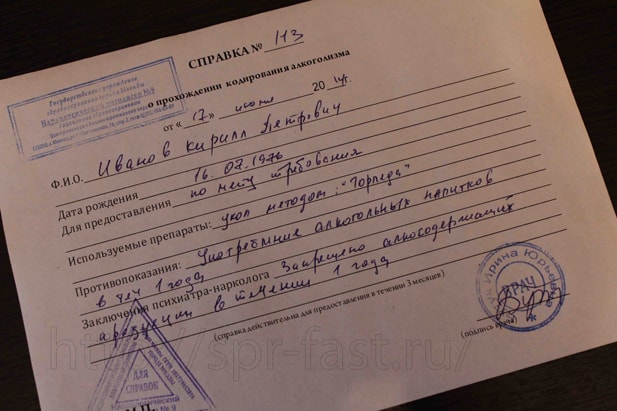 Государственное учреждение
здравоохранения г. Москвы
Наркологический диспансер №9
СПРАВКА № 113
о прохождении кодирования алкоголизма
от « 17 » июня 20 14г.
Ф.И.О. Иванов Кирилл Петрович
Дата рождения 16.07.1976
Для предоставления по месту требования
Используемые препараты: укол методом: "Торпедо"
Противопоказания: Употребление алкогольных напитков
в теч 1 года
Заключения психиатра-нарколога Запрещено алкосодержащих
продукции в течении 1 года
(справка действительна для предоставления в течении 3 месяцев)
(подпись врача)
Ирина Юрьев
ВРАЧ
ДЛЯ
СПРАВОК
№ 9
М.П.
http://spr-fast.ru/